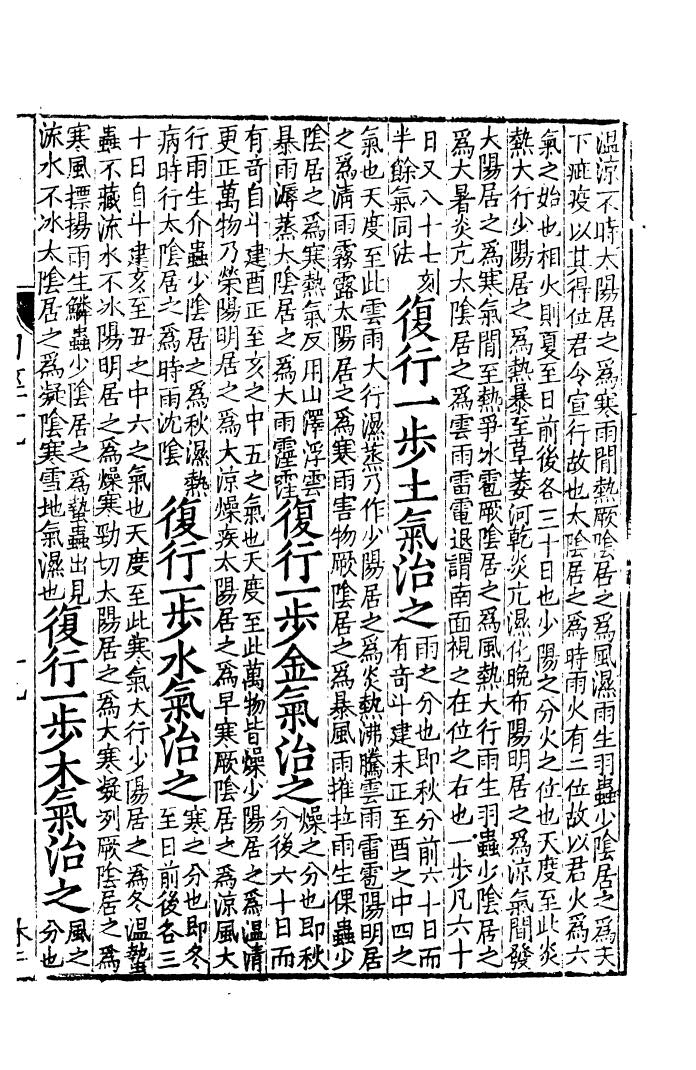 溫涼不時太陽居之爲寒雨間熱厥陰居之爲風濕雨生羽蟲少陰居之爲天
下疵疫以其得位君令宣行故也太陰居之爲時雨火有二位故以君火爲六
氣之始也相火則夏至日前後各三十日也少陽之分火之位也天度至此炎
熱大行少陽居之爲熱暴至草萎河乾炎亢濕化晚布陽明居之爲涼氣間發
大陽居之爲寒氣間至熱爭冰雹厥陰居之爲風熱大行雨生羽蟲少陰居之
爲大暑炎亢太陰居之爲雲雨雷電退謂南面視之在位之右也一步凡六十
日又八十七刻
半餘氣同法
復行一步土氣治之
雨之分也即秋分前六十日而
有奇斗建未正至酉之中四之
氣也天度至此雲雨大行濕蒸乃作少陽居之爲炎熱沸騰雲雨雷雹陽明居
之爲清雨霧露太陽居之爲寒雨害物厥陰居之爲暴風雨摧拉雨生倮蟲少
陰居之爲寒熱氣反用山澤浮雲
暴雨溽蒸大陰居之爲大雨霪霪
復行一步金氣治之
燥之分也即秋
分後六十日而
有奇自斗建酉正至亥之中五之氣也天度至此萬物皆燥少陽居之爲溫清
更正萬物乃榮陽明居之爲大涼燥疾太陽居之爲早寒厥陰居之爲涼風大
行雨生介蟲少陰居之爲秋濕熱
病時行太陰居之爲時雨沈陰
復行一步水氣治之
寒之分也即冬
至日前後各三
十日自斗建亥至丑之中六之氣也天度至此寒氣大行少陽居之爲冬溫蟄
蟲不藏流水不冰陽明居之爲燥寒勁切太陽居之爲大寒凝列厥陰居之爲
寒風摽揚雨生鱗蟲少陰居之爲蟄蟲出見
流水不冰太陰居之爲凝陰寒雪地氣濕也
復行一步木氣治之
風之
分也